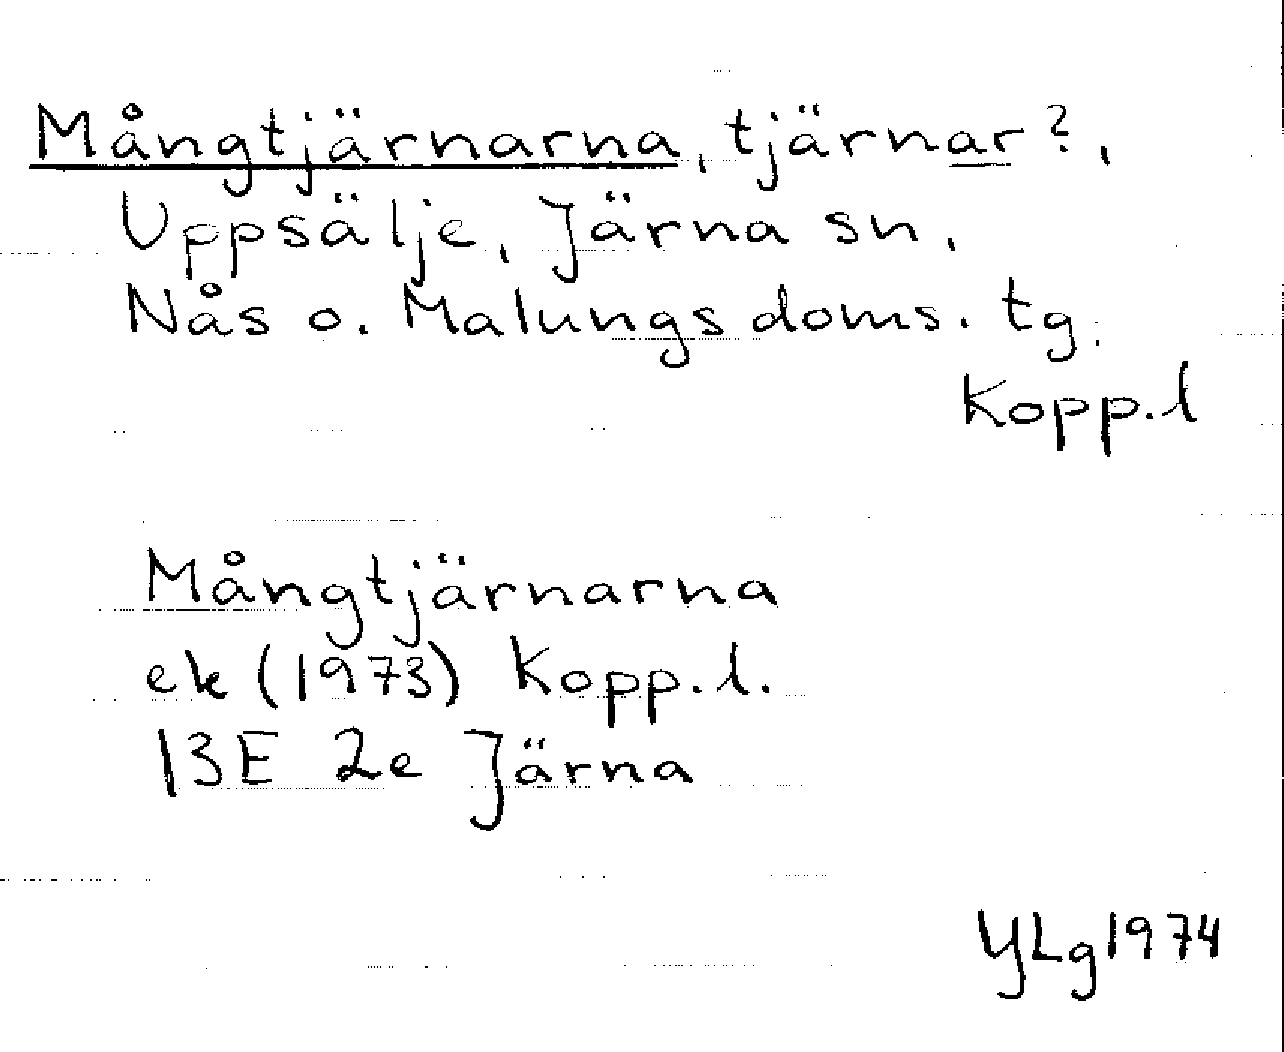 Mångtjärnarna, tjärnar?,
Uppsälje, Järna sn,
Nås o. Malungs doms. tg.
Kopp.l
Mångtjärnarna
ek (1973) Kopp.l.
13E 2e Järna
YLg 1974